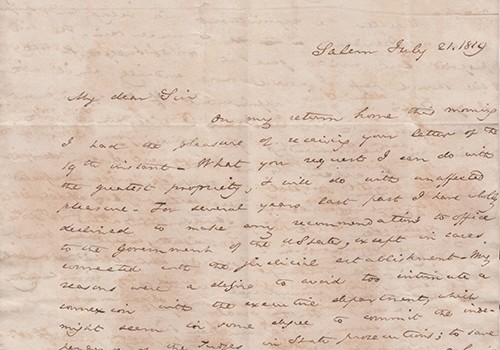 Salem July 21. 1819
My dear Sir
On my return home this morning
I had the pleasure of receiving your letter of the
19th instant - What you request I can do with
the greatest propriety, & will do with unaffected
pleasure - For several years last past I have
declined to make any recommendations to office
to the Government of the U States, except in cases
connected with the judicial establishment - My
reasons were a desire to avoid too intimate a
connexion with the executive department, which
might seem in some degree to commit the inde-
pendence of the Judges in State prosecutions; to save